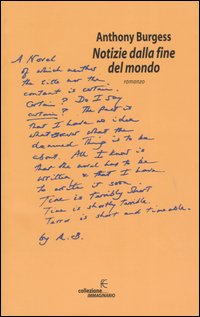 Anthony Burgess
Notizie dalla fine
del mondo
romanzo
A Novel
of which neither
the title nor the
content is certain.
Certain? Do I say
certain? The fact is
that I have no idea
whatsoever what the
damned thing is to be
about. All I know is
that the novel has to be
written, & that I have
to write it soon
Time is terribly short
Time is shortly terrible.
Terror is short and timeable.
by A.B.
collezione
IMMAGINARIO